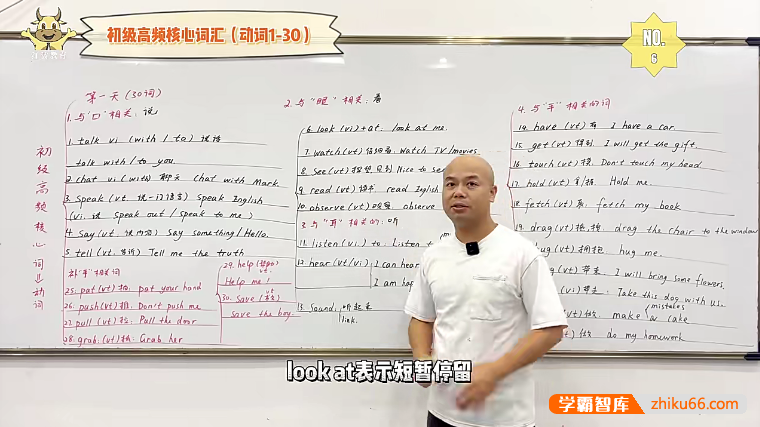 初级高频核心词汇（动词1-30）
NO.
6
初级高频核心词汇动词
第一天 (30词)
1. 与"口"相关: 说
1. talk vi (with / to) 谈话
talk with / to you.
2. chat vi (with) 聊天 chat with Mark
3. speak (vt. 说一门语言) speak English
(vi. 说 speak out / speak to me)
4. Say (vt. 说内容) Say something / Hello.
5. tell (vt. 告诉) Tell me the truth
补"手"相关词
25. pat (vt) 拍. pat your hand
26. push (vt) 推. Don't push me
27. pull (vt) 拉. Pull the door
28. grab (vt) 抓. Grab her
29. help (帮助)
vt.
Help me!
vt
30. Save (救)
Save the boy.
2. 与"眼"相关: 看
6. look (vi) + at. look at me.
7. watch (vt) Watch TV / movies.
8. See (vt) Nice to se
9. read (vt) 读书 read English
10. observe (vt) 观察. observe
3. 与"耳"相关的: 听
11. listen (vi.) to. Listen t
12. hear (vt/vi) I can hear
I am hap
13. Sound. 听起来
link.
4. 与"手"相关的词
14. have (vt) 有 I have a car.
15. get (vt) 得到 I will get the gift.
16. touch (vt) 摸. Don't touch my head
17. hold (vt) Hold me.
18. fetch (vt) 取. fetch my book
19. drag (vt) drag the chair to the window
ug (vt) 拥抱 hug me.
g (vt) 带来. I will bring some flowers.
(vt) 带走. Take this dog with us.
mistakes
(vt) 做 make a cake
(vt) 做 do my homework
look at表示短暂停留
学霸智库 zhiku66.com